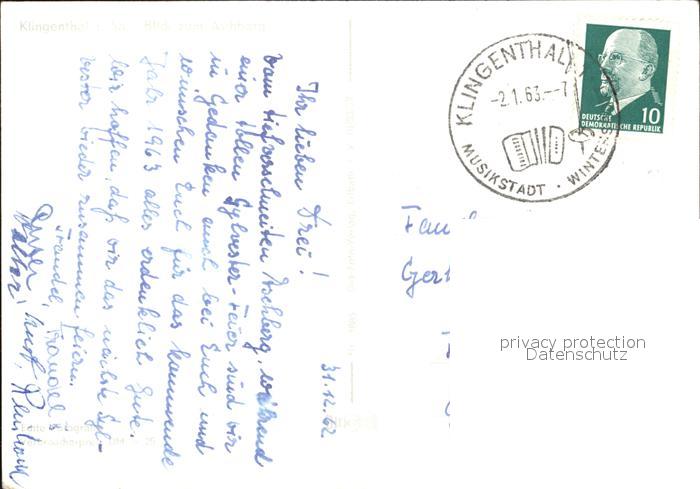 Klingenthal i. Sa. Blick zum Aschberg
31.12.62
Ihr lieben Drei!
Vom tiefverschneiten Aschberg, während
einer tollen Sylvester-Feier sind wir
in Gedanken auch bei Euch und
wünschen Euch für das kommende
Jahr 1963 alles erdenklich Gute.
Wir hoffen, daß wir das nächste Syl-
vester wieder zusammen feiern.
KLINGENTHAL
-2.1.63.--7
MUSIKSTADT · WINTERS
DEUTSCHE
DEMOKRATISCHE REPUBLIK
10
Fam
Ger
privacy protection
Datenschutz